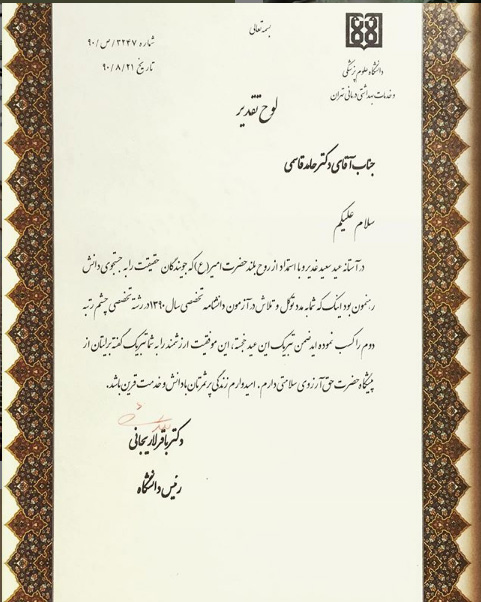 بسمه تعالی
شماره ۳۲۴۷/ص/۹۰
تاریخ ۹۰/۸/۲۱
دانشگاه علوم پزشکی
و خدمات بهداشتی درمانی تهران
لوح تقدیر
جناب آقای دکتر حامد قاسمی
سلام علیکم
در آستانه عید سعید غدیر و با استمداد از روح بلند حضرت امیر(ع) که جویندگان حقیقت را به جستجوی دانش
رهنمون بود اینک که شما به مدد توکل و تلاش در آزمون دانشنامه تخصصی سال ۱۳۹۰ در رشته تخصصی چشم رتبه
دوم را کسب نموده اید ضمن تبریک این عید خجسته، این موفقیت ارزشمند را به شما تبریک گفته برایتان از
پیشگاه حضرت حق آرزوی سلامتی دارم. امیدوارم زندگی پرثمرتان با دانش و خدمت قرین باشد.
دکتر باقر لاریجانی
رئیس دانشگاه